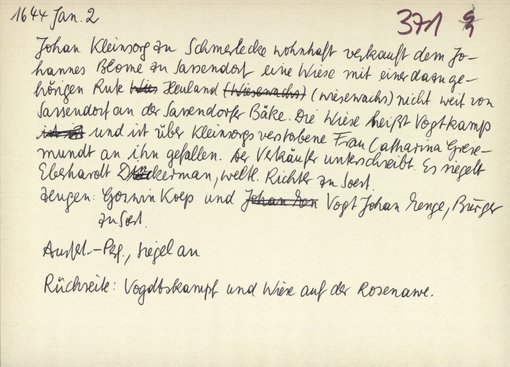 1644 Jan. 2 371
Johan Kleinsorg zu Schmerlecke wohnhaft verkauft dem Jo-
hannes Blome zu Sassendorf eine Wiese mit einer dazu ge-
hörigen Rute Heuland (Wiesewachs) (wiesewachs) nicht weit von
Sassendorf an der Sassendorfer Bäke. Die Wiese heißt Vogtkamp
und ist über Kleinsorgs verstorbene Frau Catharina Grese-
mundt an ihn gefallen. Der Verkäufer unterschreibt. Es siegelt
Eberhardt Deckerman, weltl. Richter zu Soest.
Zeugen: Goswin Koep und Vogt Johan Menge, Bürger
zu Soest.
Ausf.-Pg., Siegel an
Rückseite: Vogdtskampf und Wiese auf der Rosenawe.